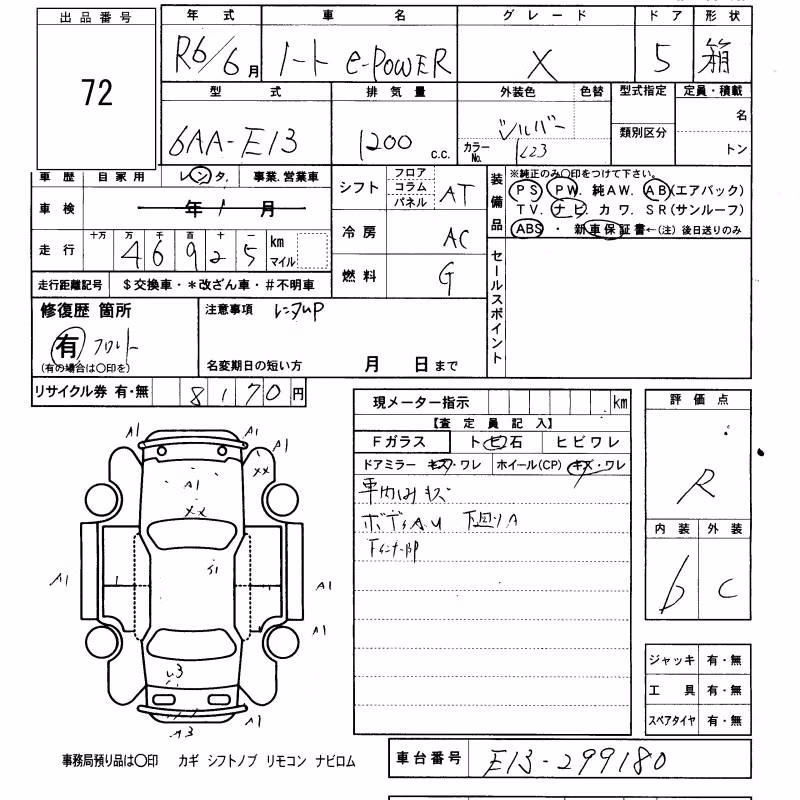 出品番号 年式 車名 グレード ドア 形状
72 R6/6月 ノート e-POWER X 5 箱
型式 排気量 外装色 色替 型式指定 定員・積載
6AA-E13 1200 c.c. シルバー 類別区分 名
カラーNo. K23 トン
車歴 自家用 レンタ. 事業.営業車 シフト フロア コラム パネル AT 装備品 ※純正のみ○印をつけて下さい。
PS PW 純AW. AB(エアバック)
車検 年 月 TV. ナビ カワ. SR(サンルーフ)
冷房 AC ABS・新車保証書←(注)後日送りのみ
走行 十万 万 千 百 十 一 km マイル
4 6 9 2 5
燃料 G セールスポイント
走行距離記号 $交換車・*改ざん車・#不明車
修復歴 箇所 注意事項 レンタUP
有 フロント
(有の場合は○印を) 名変期日の短い方 月 日まで
リサイクル券 有・無 8170円
現メーター指示 km 評価点
【査定員記入】
Fガラス トビ石 ヒビワレ
ドアミラー キズ・ワレ ホイール(CP) キズ・ワレ
R
車内 キズ
ボディAU 下回りA
内装 外装
b C
A1 A1 A1
XX
A1
XX
A1 A1
A1
A3 A1
ジャッキ 有・無
工具 有・無
スペアタイヤ 有・無
事務局預り品は○印 カギ シフトノブ リモコン ナビロム
車台番号 E13-299180